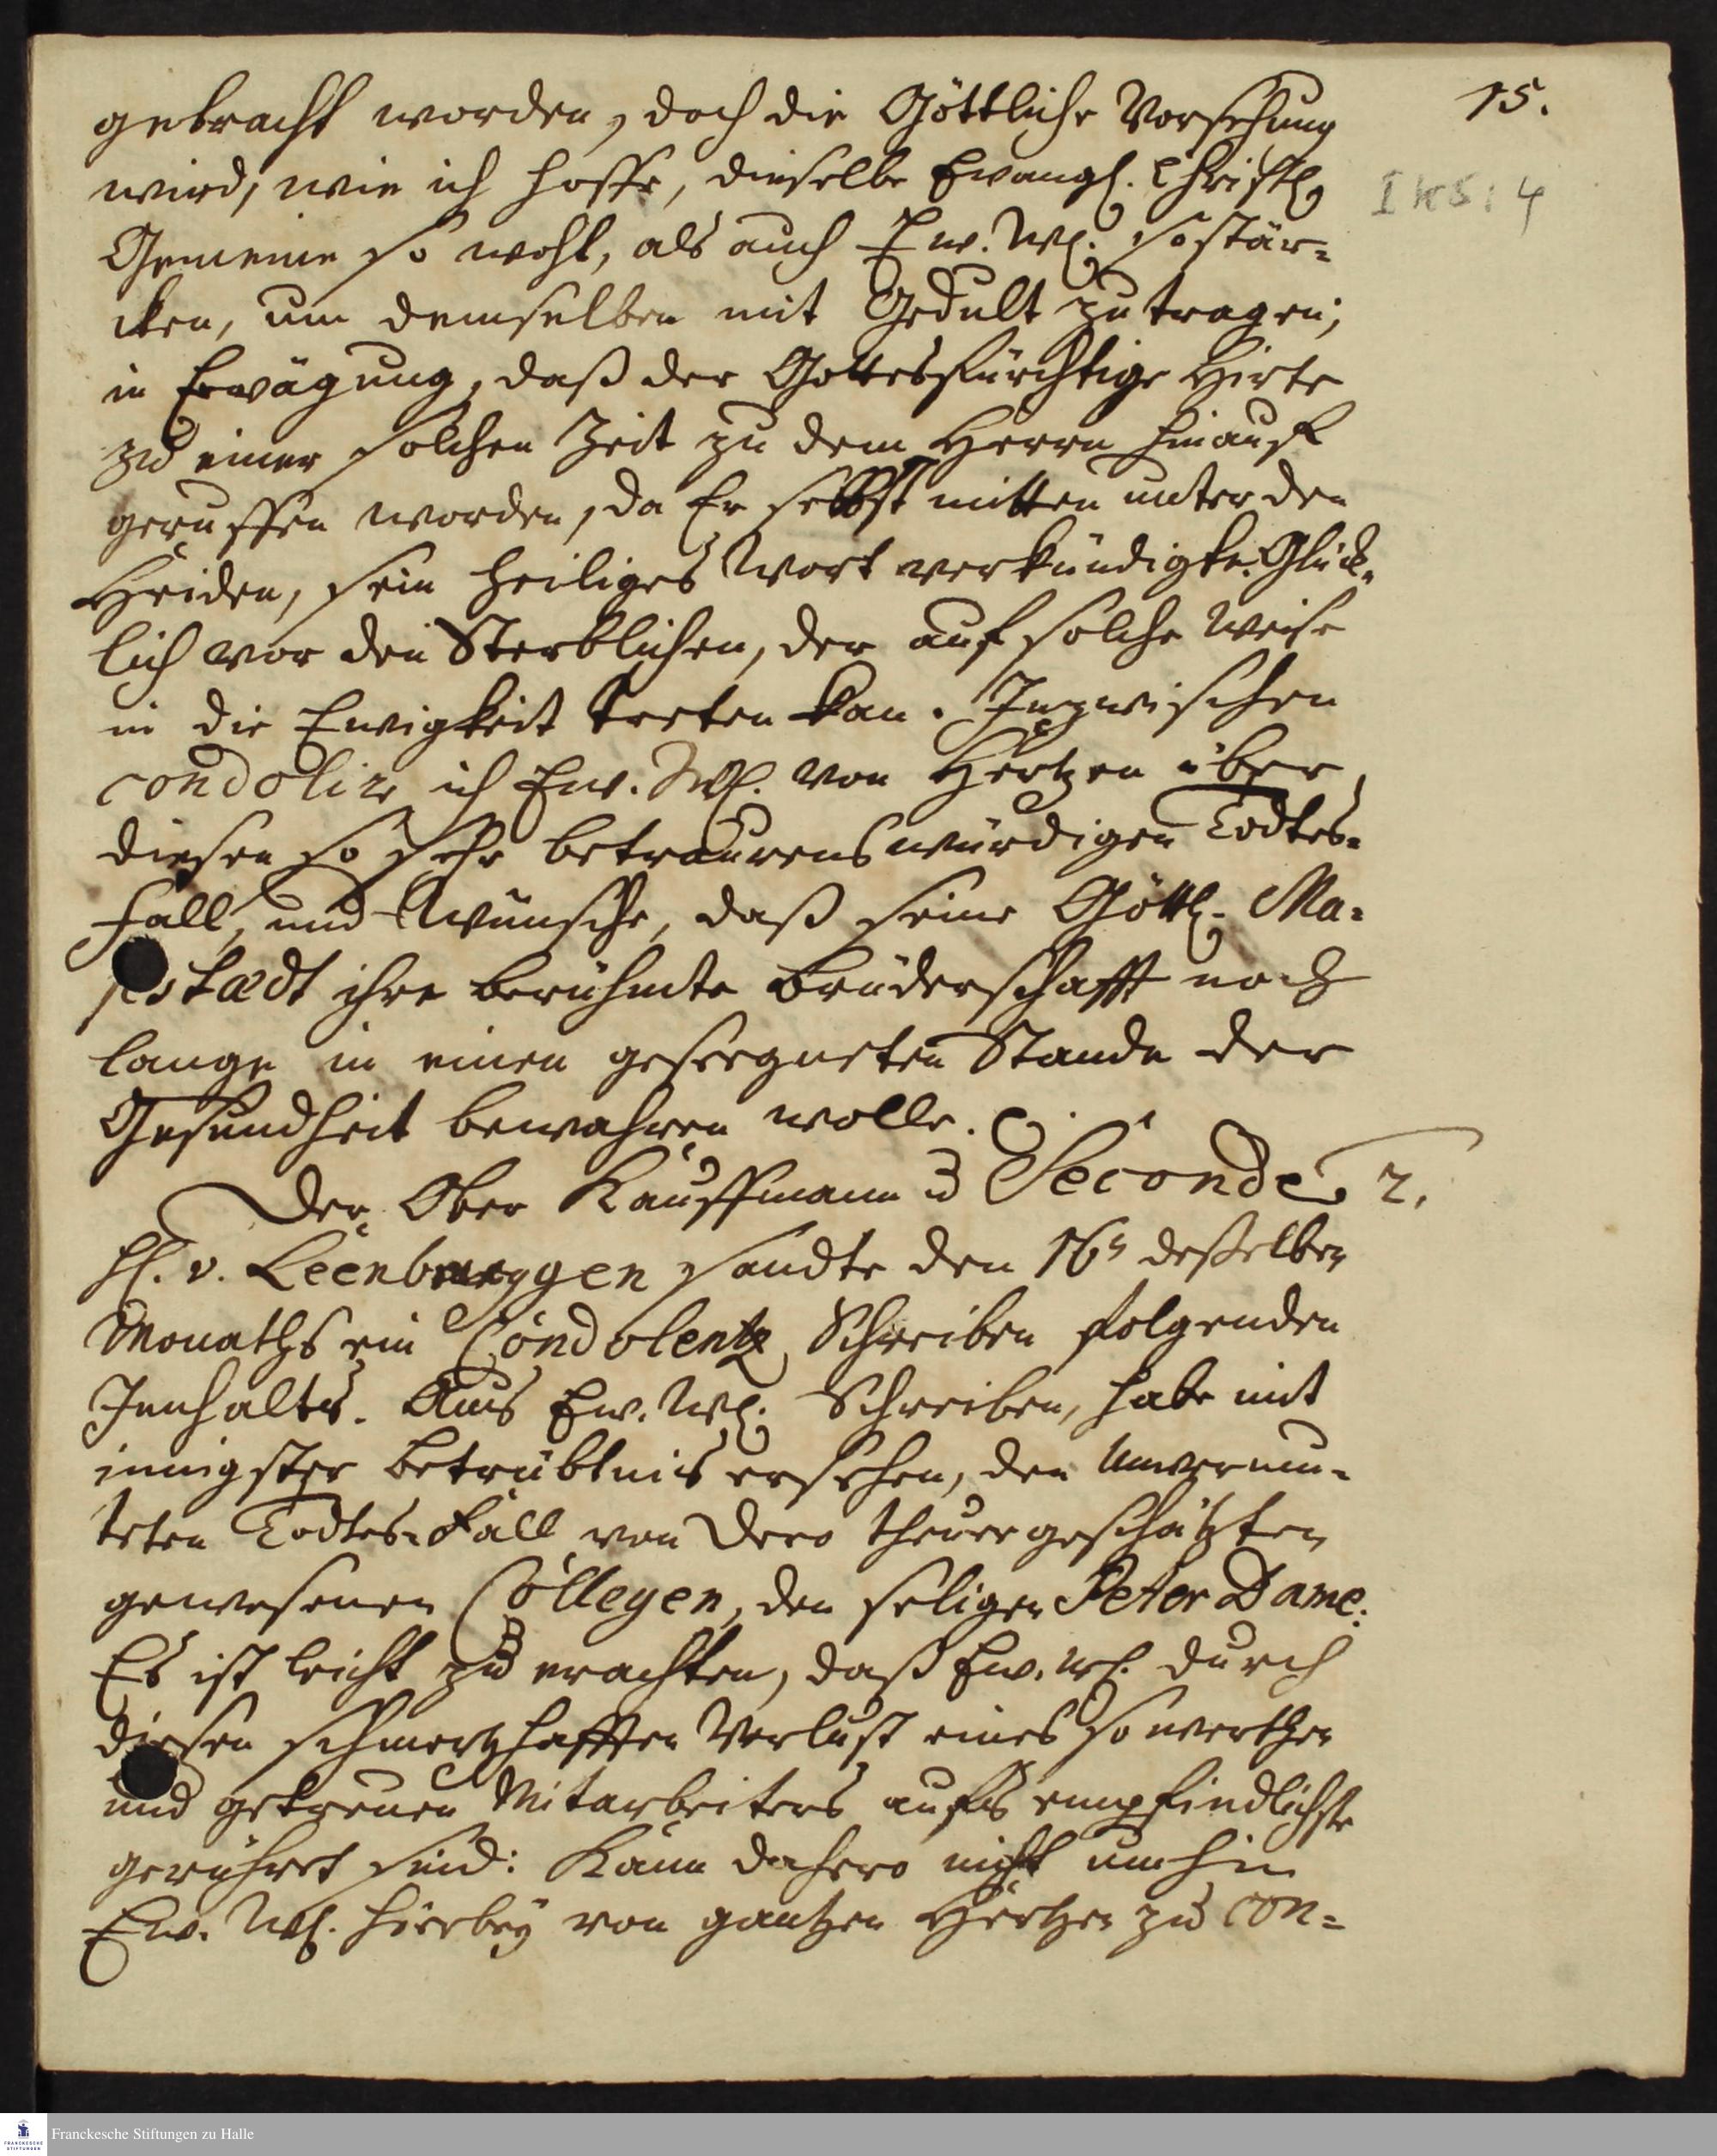 15.
I K 5 : 4
gebracht worden, doch die Göttliche Vorsehung
wird, wie ich hoffe, dieselbe Evangl. Christl.
Gemeine so wohl, als auch Ew. WE. so stär-
cken, um demselben mit Gedult zu tragen;
in Erwägung, daß der Gottesfürchtige Hirte
zu einer solchen Zeit zu dem Herrn hinauf
geruffen worden, da Er selbst mitten unter den
Heiden, sein heiliges Wort verkündigte. Glück-
lich vor den Sterblichen, der auf solche Weise
in die Ewigkeit treten kan. Inzwischen
condolire ich Ew. WE. von Hertzen über
diesen so sehr betraurens würdigen Todtes-
fall, und wünsche, daß seine Göttl. Ma-
jestædt ihre berühmte Brüderschafft noch
lange in einen geseegneten Stande der
Gesundheit bewahren wolle.
Der Ober Kauffmann u Seconde 2.
H. v. Leenbruggen sandte den 16n deßelben
Monaths ein Condolentz Schreiben folgenden
Innhalts. Aus Ew. WE. Schreiben, habe mit
innigster Betrübtnis ersehen, den Unvermu-
teten Todtes-Fall von Dero theuergeschätzten
gewesenen Collegen, den seligen Peter Dame:
Es ist leicht zu erachten, daß Ew. WE. durch
diesen schmertzhafften Verlust eines so werthen
und getreuen Mitarbeiters aufs empfindlichste
gerühret sind: Kann dahero nicht umhin
Ew. WE. hierbey von gantzen Hertzen zu con-
Franckesche Stiftungen zu Halle